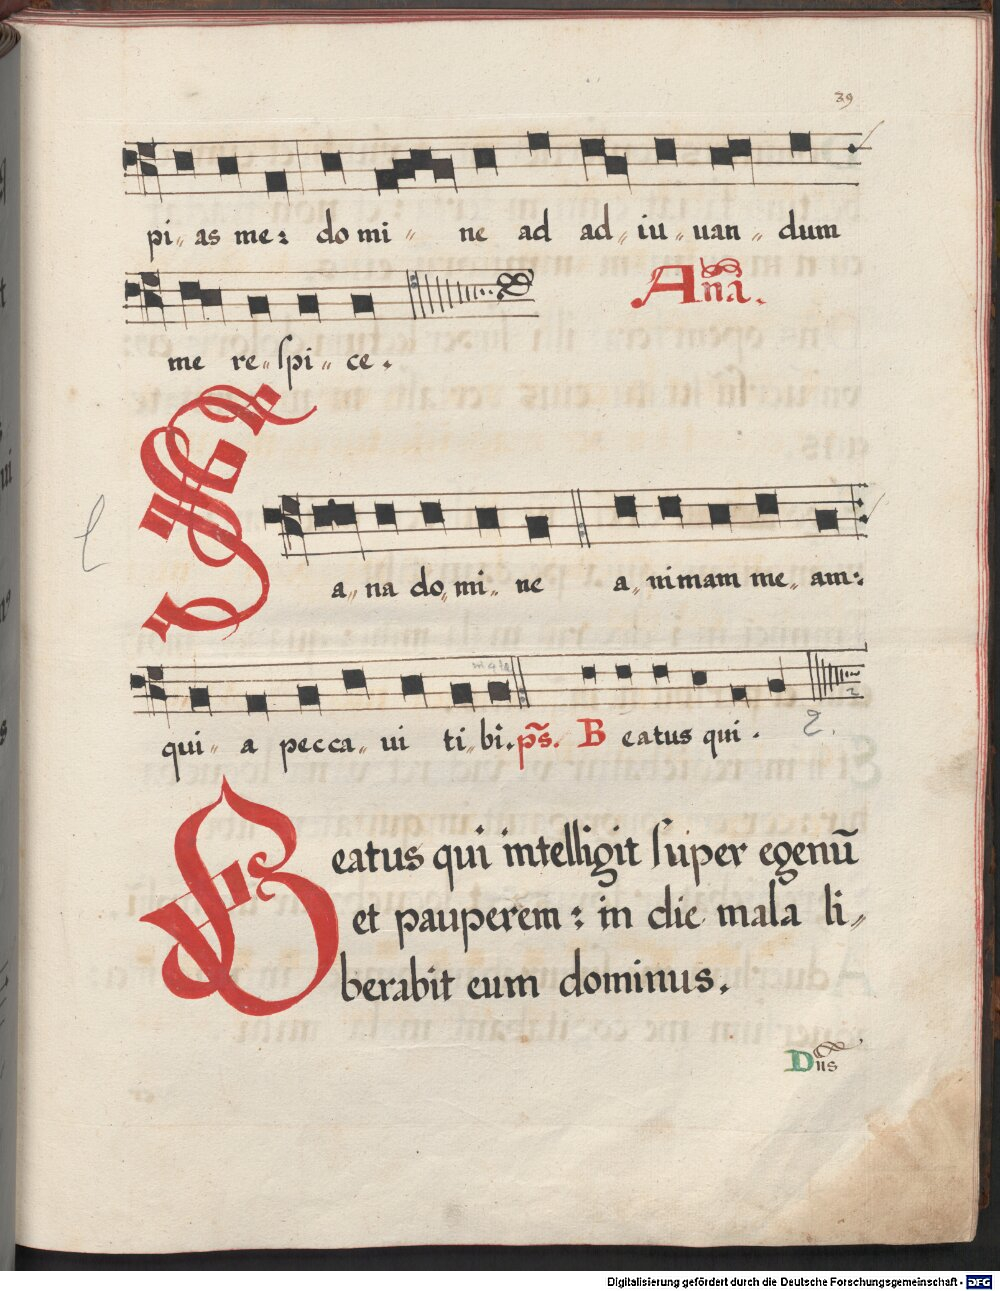 39
pi„ as me: do mi„ ne ad ad„ iu„ uan„ dum
Aña.
me re„ ſpi„ ce.
S a„ na do„ mi„ ne a„ nimam me„ am:
qui„ a pecca„ ui ti„ bi. ps̃. B eatus qui.
2.
Beatus qui intelligit ſuper egenũ
et pauperem: in die mala li„
berabit eum dominus.
Dñs
Digitalisierung gefördert durch die Deutsche Forschungsgemeinschaft - DFG